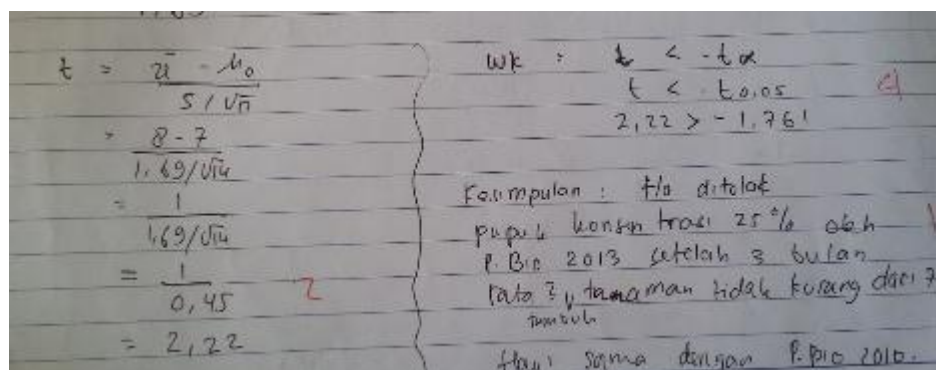 t = x̄ - μ₀
S / √n
= 8 - 7
1,69/√14
= 1
1,69/√14
= 1
0,45
2
= 2,22
WK : t < -tα
t < -t0,05
2,22 > -1,761
Kesimpulan : Ho ditolak
pupuk konsentrasi 25% oleh
P. Bio 2013 setelah 3 bulan
rata2 tanaman tidak kurang dari 7
tumbuh
sama dengan P. Bio 2010.